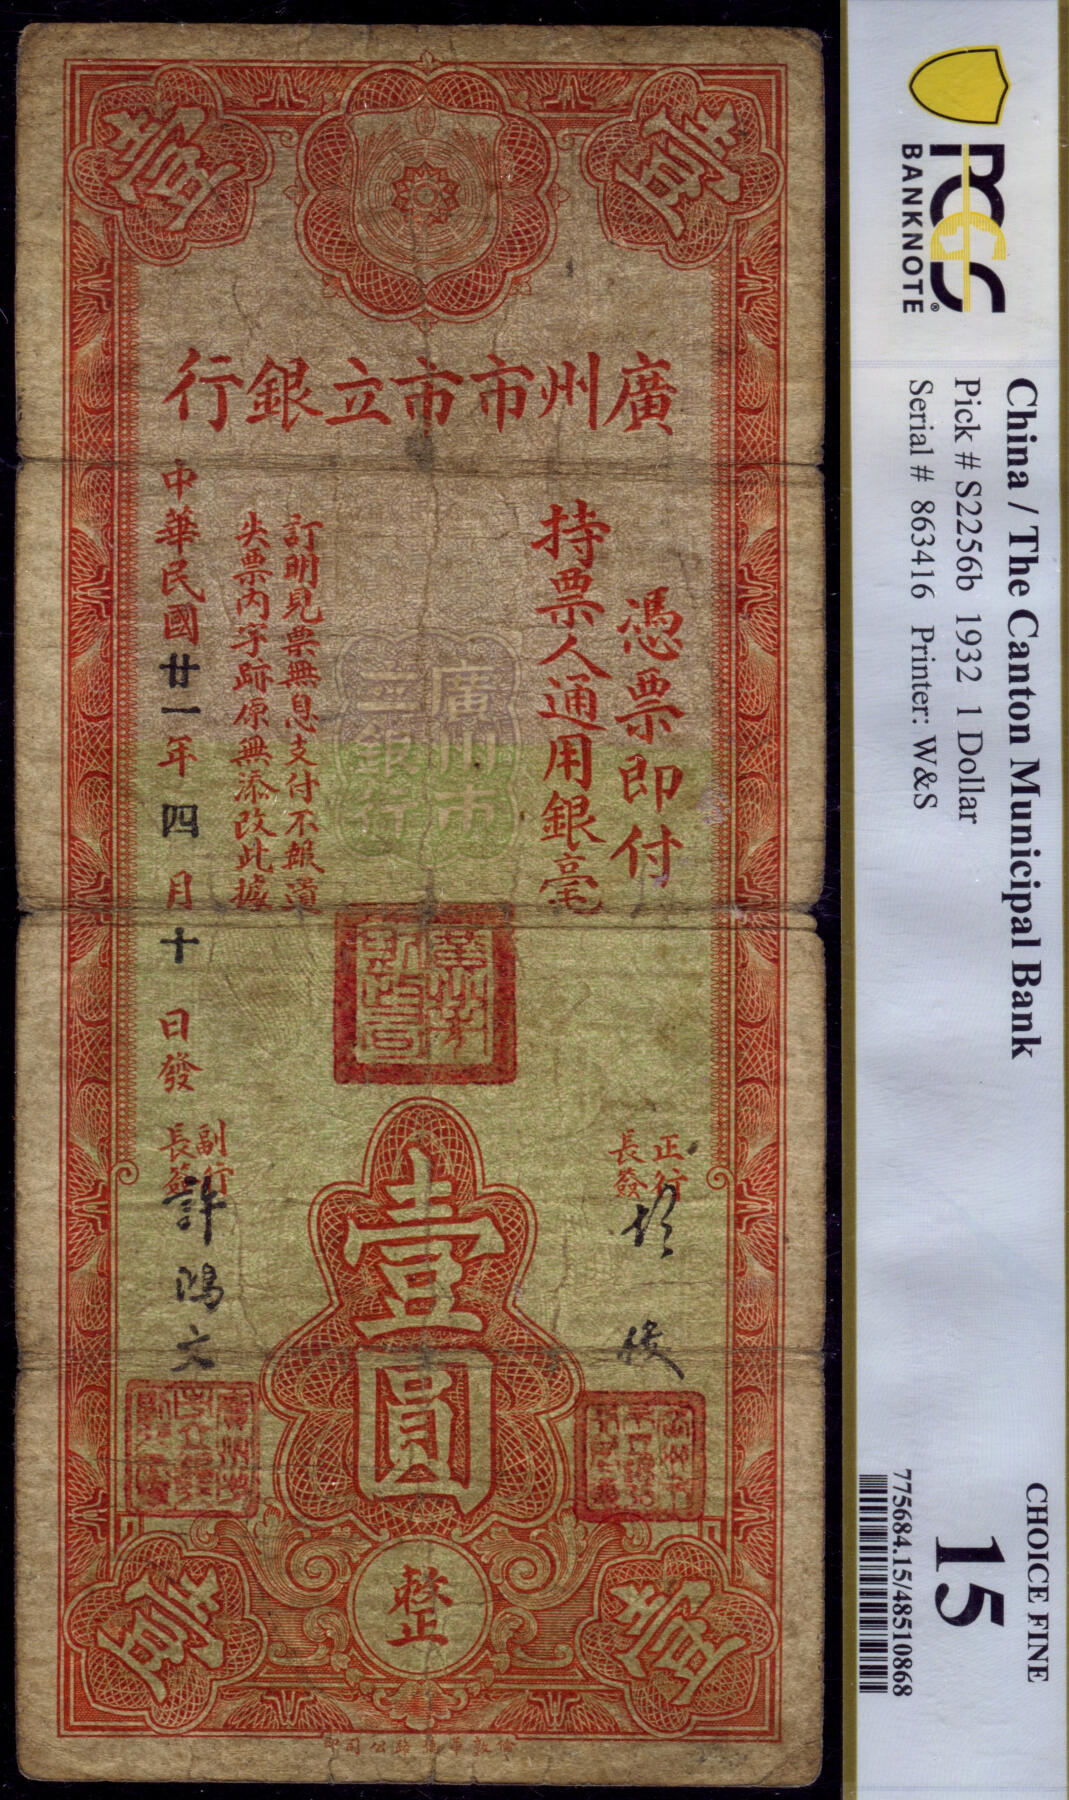 壹
壹
廣州市市立銀行
憑票即付
持票人通用銀毫
廣州市
立銀行
訂明見票無息支付不報遺
失票內字跡原無添改此據
中華民國廿一年四月十日發
正行
長簽
副行
長簽
許鴻文
壹圓
整
壹
壹
PCGS
BANKNOTE
China / The Canton Municipal Bank
Pick # S2256b 1932 1 Dollar
Serial # 863416 Printer: W&S
CHOICE FINE
15
775684.15/48510868